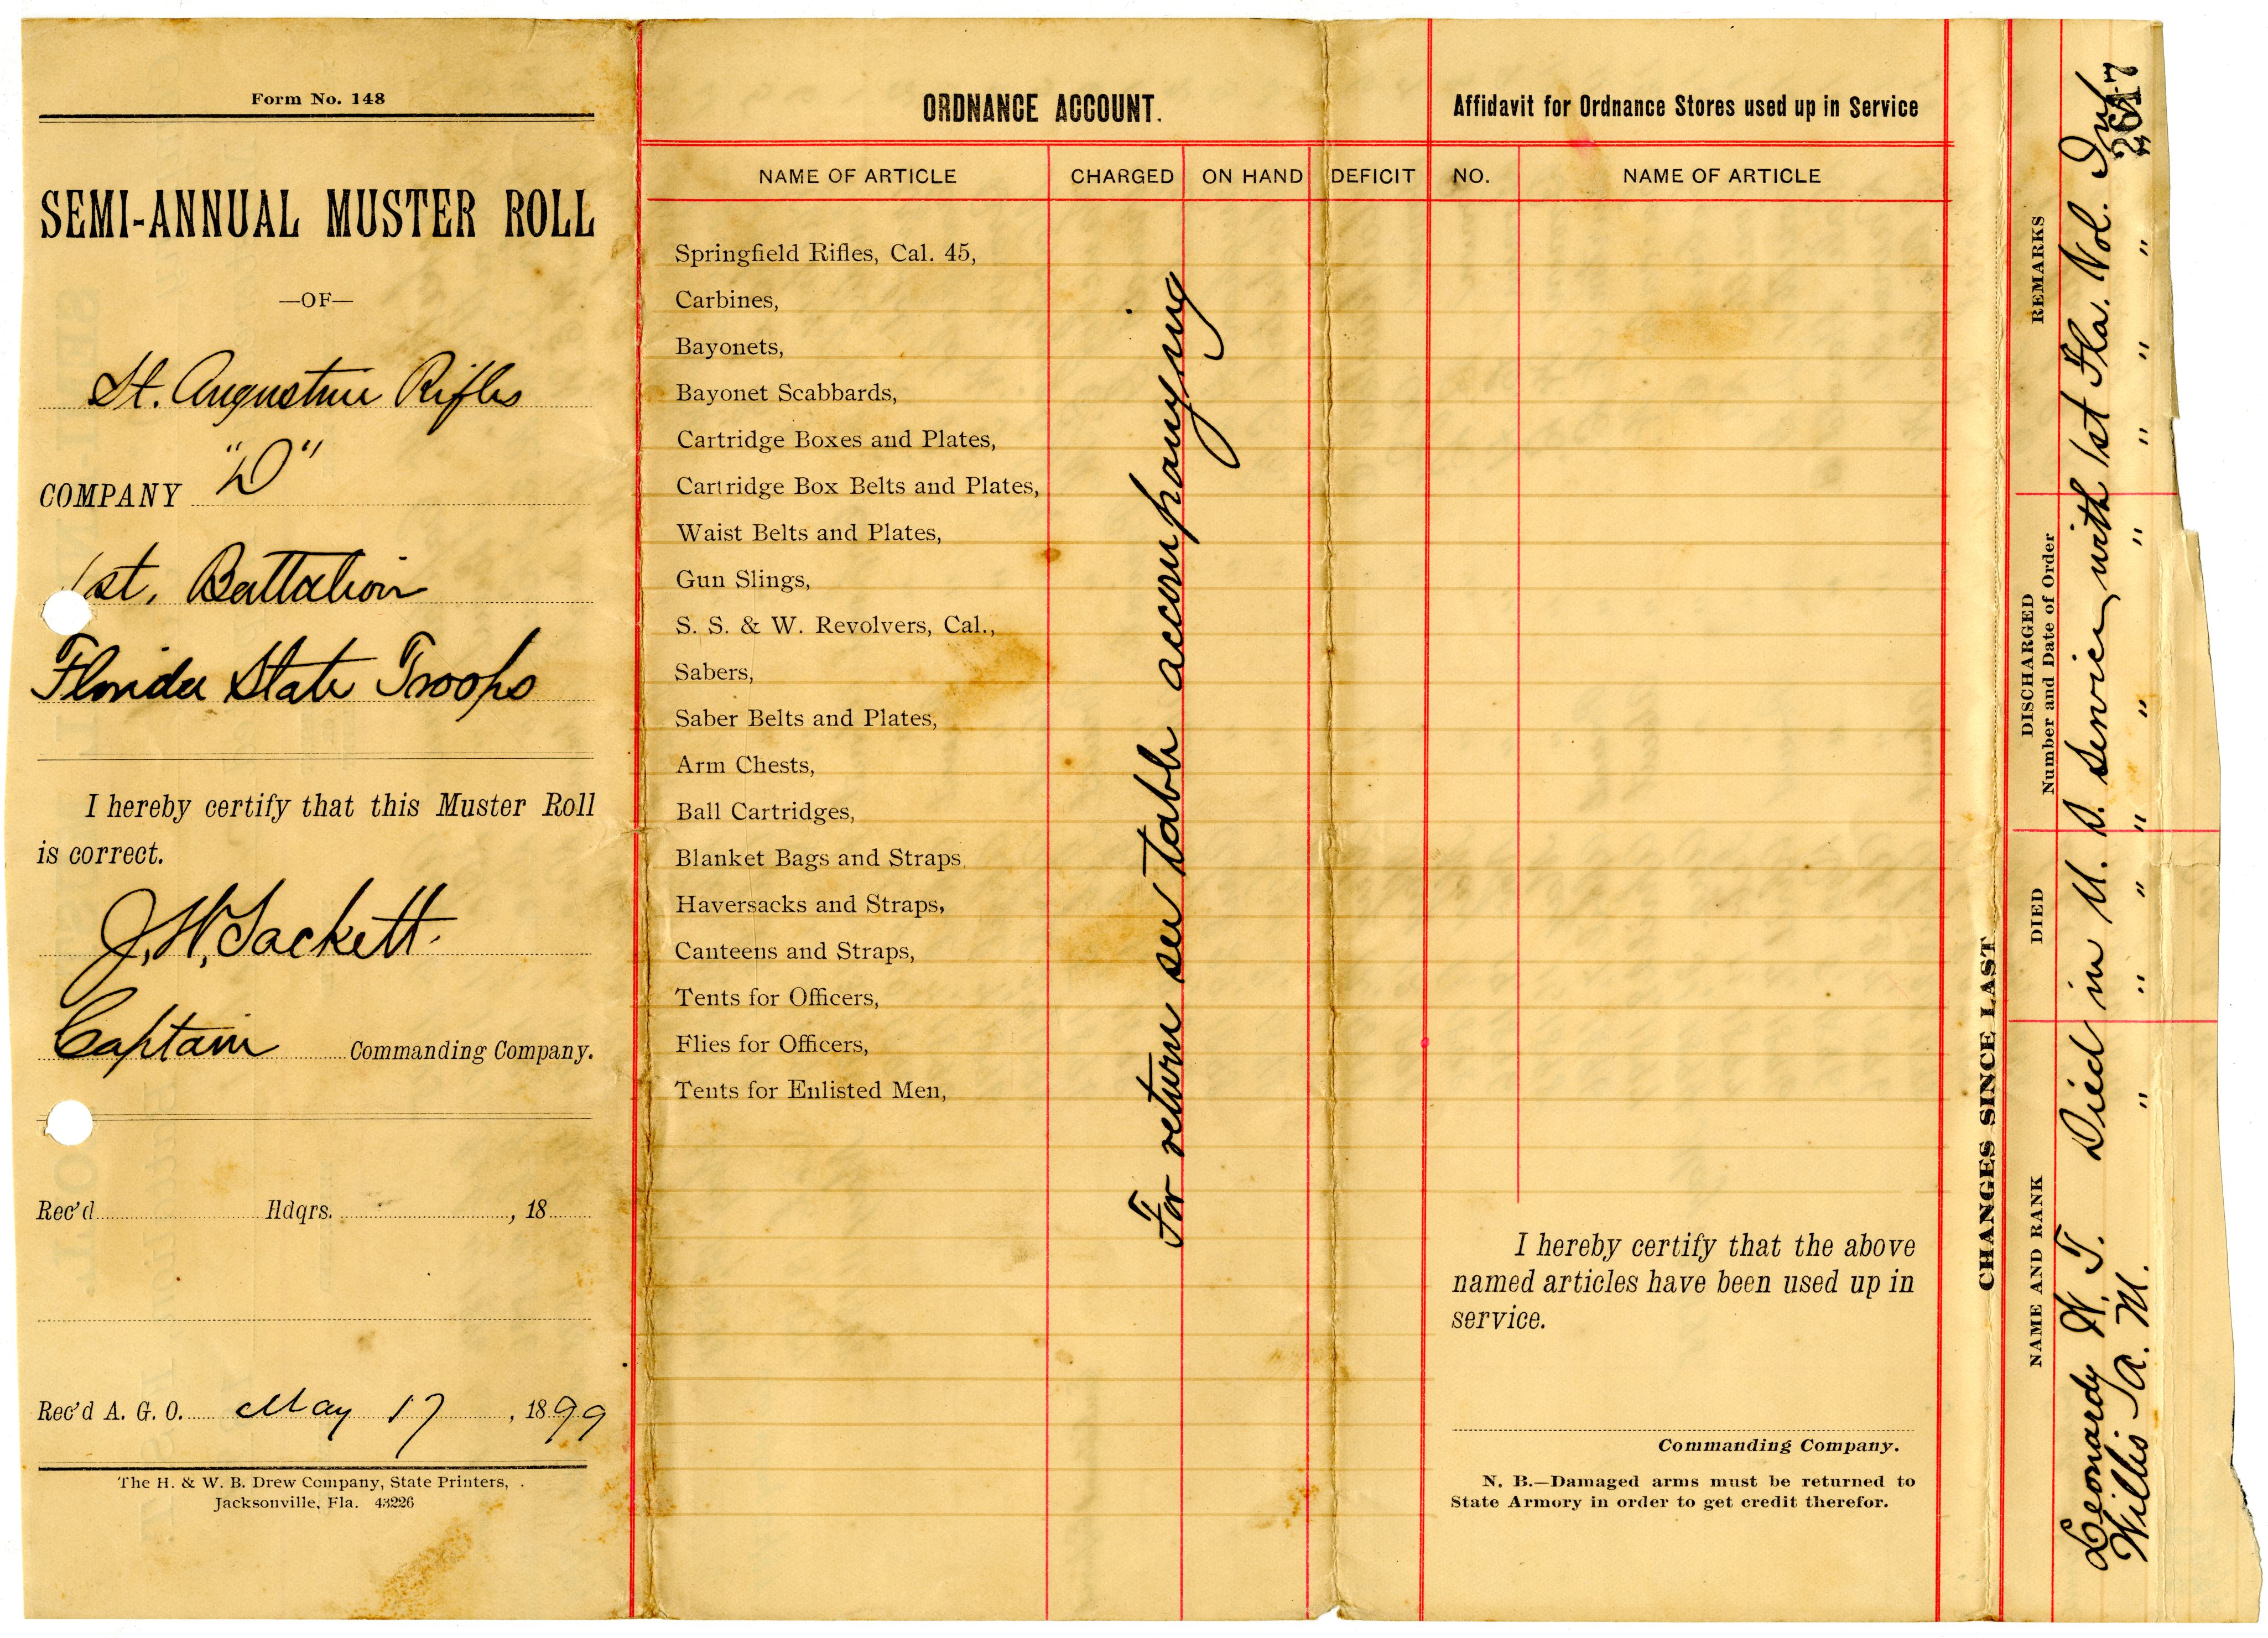 Form No. 148
SEMI-ANNUAL MUSTER ROLL
—OF—
St. Augustine Rifles
COMPANY "D"
1st. Battalion
Florida State Troops
I hereby certify that this Muster Roll
is correct.
J. W. Sackett.
Captain Commanding Company.
Rec'd Hdqrs. , 18
Rec'd A. G. O. May 17, 1899
The H. & W. B. Drew Company, State Printers,
Jacksonville, Fla. 43226
ORDNANCE ACCOUNT.
NAME OF ARTICLE CHARGED ON HAND DEFICIT
Springfield Rifles, Cal. 45,
Carbines,
Bayonets,
Bayonet Scabbards,
Cartridge Boxes and Plates,
Cartridge Box Belts and Plates,
Waist Belts and Plates,
Gun Slings,
S. S. & W. Revolvers, Cal.,
Sabers,
Saber Belts and Plates,
Arm Chests,
Ball Cartridges,
Blanket Bags and Straps
Haversacks and Straps,
Canteens and Straps,
Tents for Officers,
Flies for Officers,
Tents for Enlisted Men,
For return see table accompanying
Affidavit for Ordnance Stores used up in Service
NO. NAME OF ARTICLE
I hereby certify that the above
named articles have been used up in
service.
Commanding Company.
N. B.—Damaged arms must be returned to
State Armory in order to get credit therefor.
CHANGES SINCE LAST
NAME AND RANK DIED DISCHARGED REMARKS
Number and Date of Order
Leonardy W. T. Died in U. S. Service, with 1st Fla. Vol. Inf
Willis Ja. M. " " " " " " " " " "
2617